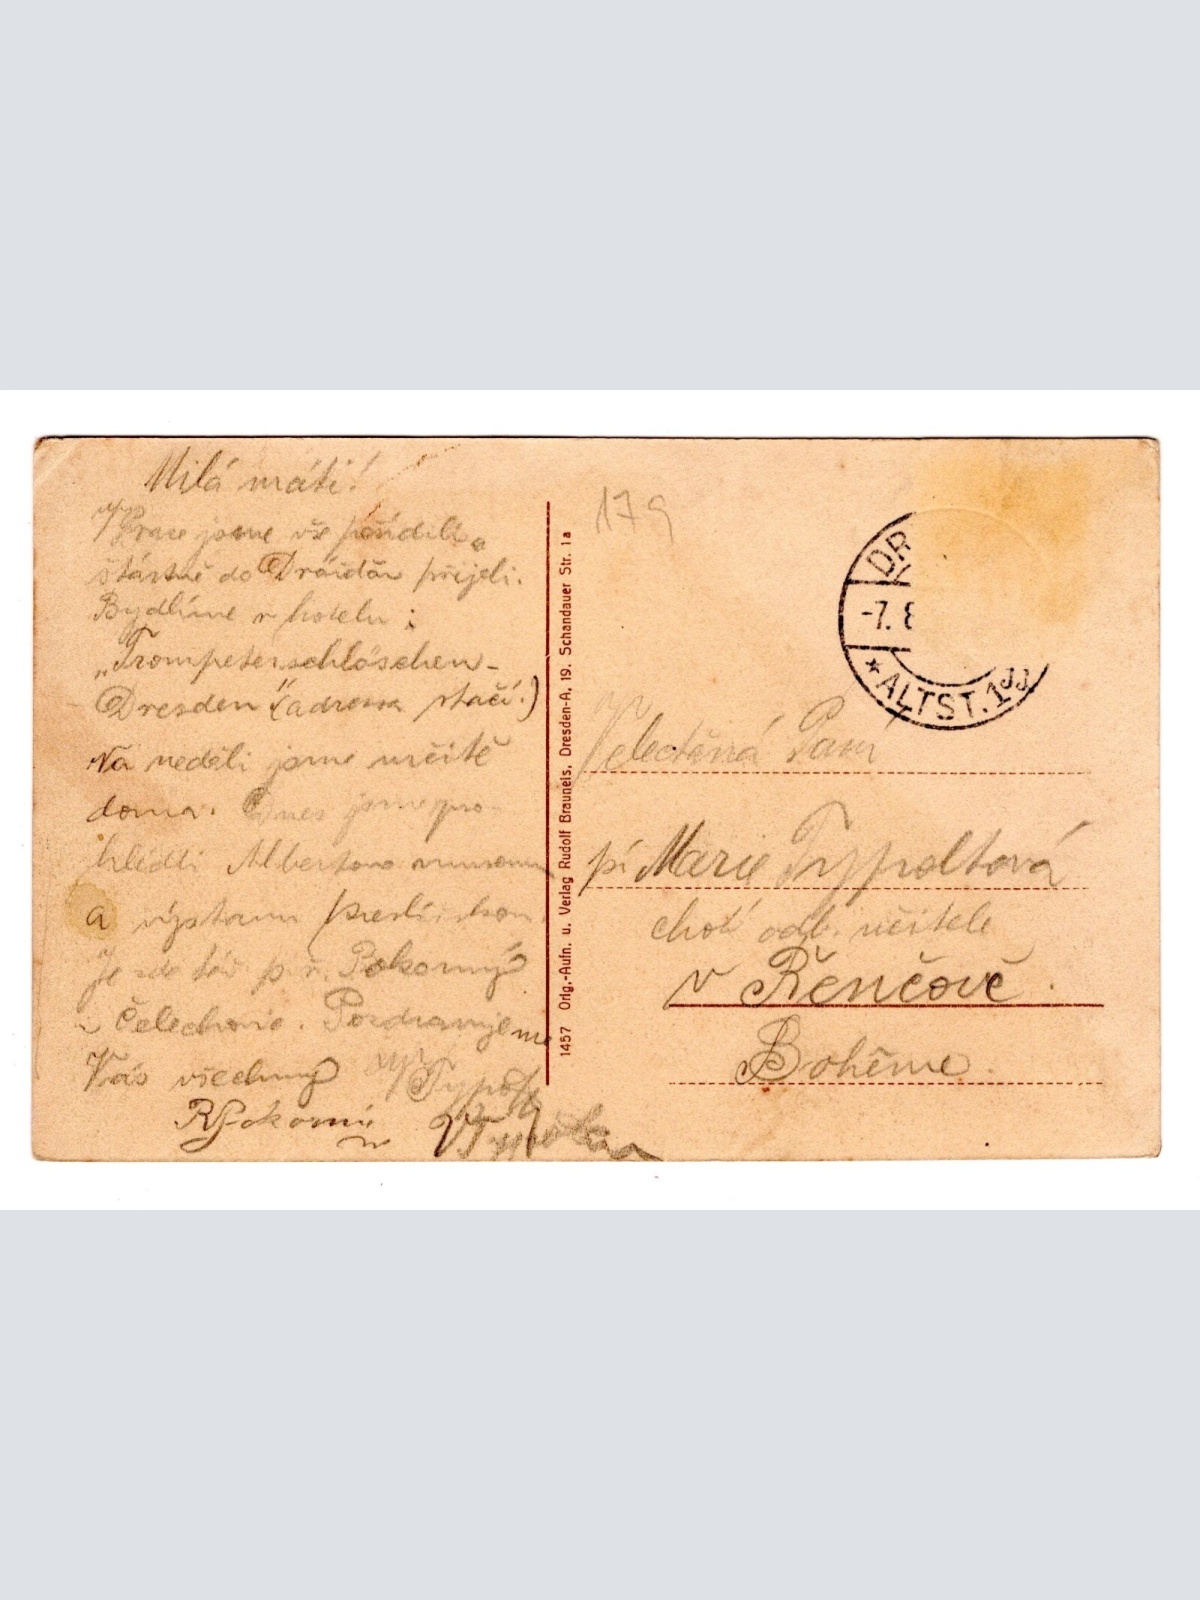 Milá máti!
V Praze jsme vše pořídili a
šťastně do Drážďan přijeli.
Bydlíme v hotelu:
„Trompeterschlöschen-
Dresden" (adressa stačí.)
Na neděli jsme určitě
doma. Dnes jsme pro-
hlédli Albertovo museum
a výstavu
Je zde též p. ř. Pokorný
z Čelechovic. Pozdravujeme
Vás všechny
RPokorní
1457 Orig.-Aufn. u. Verlag Rudolf Brauneis, Dresden-A, 19. Schandauer Str. 1a
179
DR
-7. 8
* ALTST. 1
Velectěná Paní
pí Marie Typoltová
choť odb. učitele
v Řenčově.
Bohême.